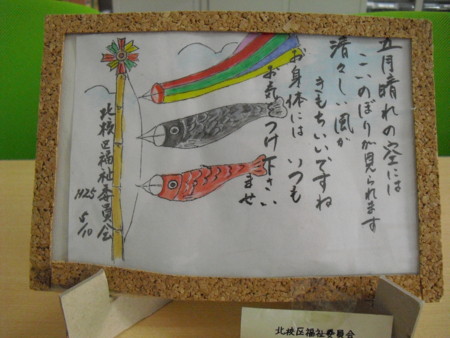 五月晴れの空には
こいのぼりが見られます
清々しい風が
きもちいいですね
お身体には いつも
お気をつけ下さいませ
北校区福祉委員会
H25
5/10
北校区福祉委員会